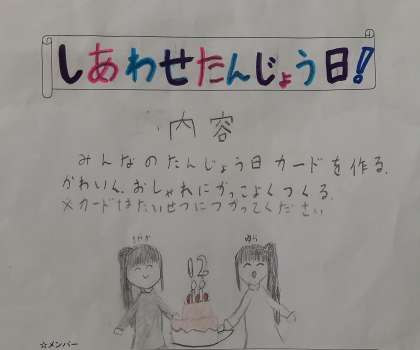 しあわせたんじょう日!
内容
みんなのたんじょう日カードを作る.
かわいく.おしゃれにかっこよくつくる.
×カードはたいせつにつかってください
ゆら
12
☆メンバー